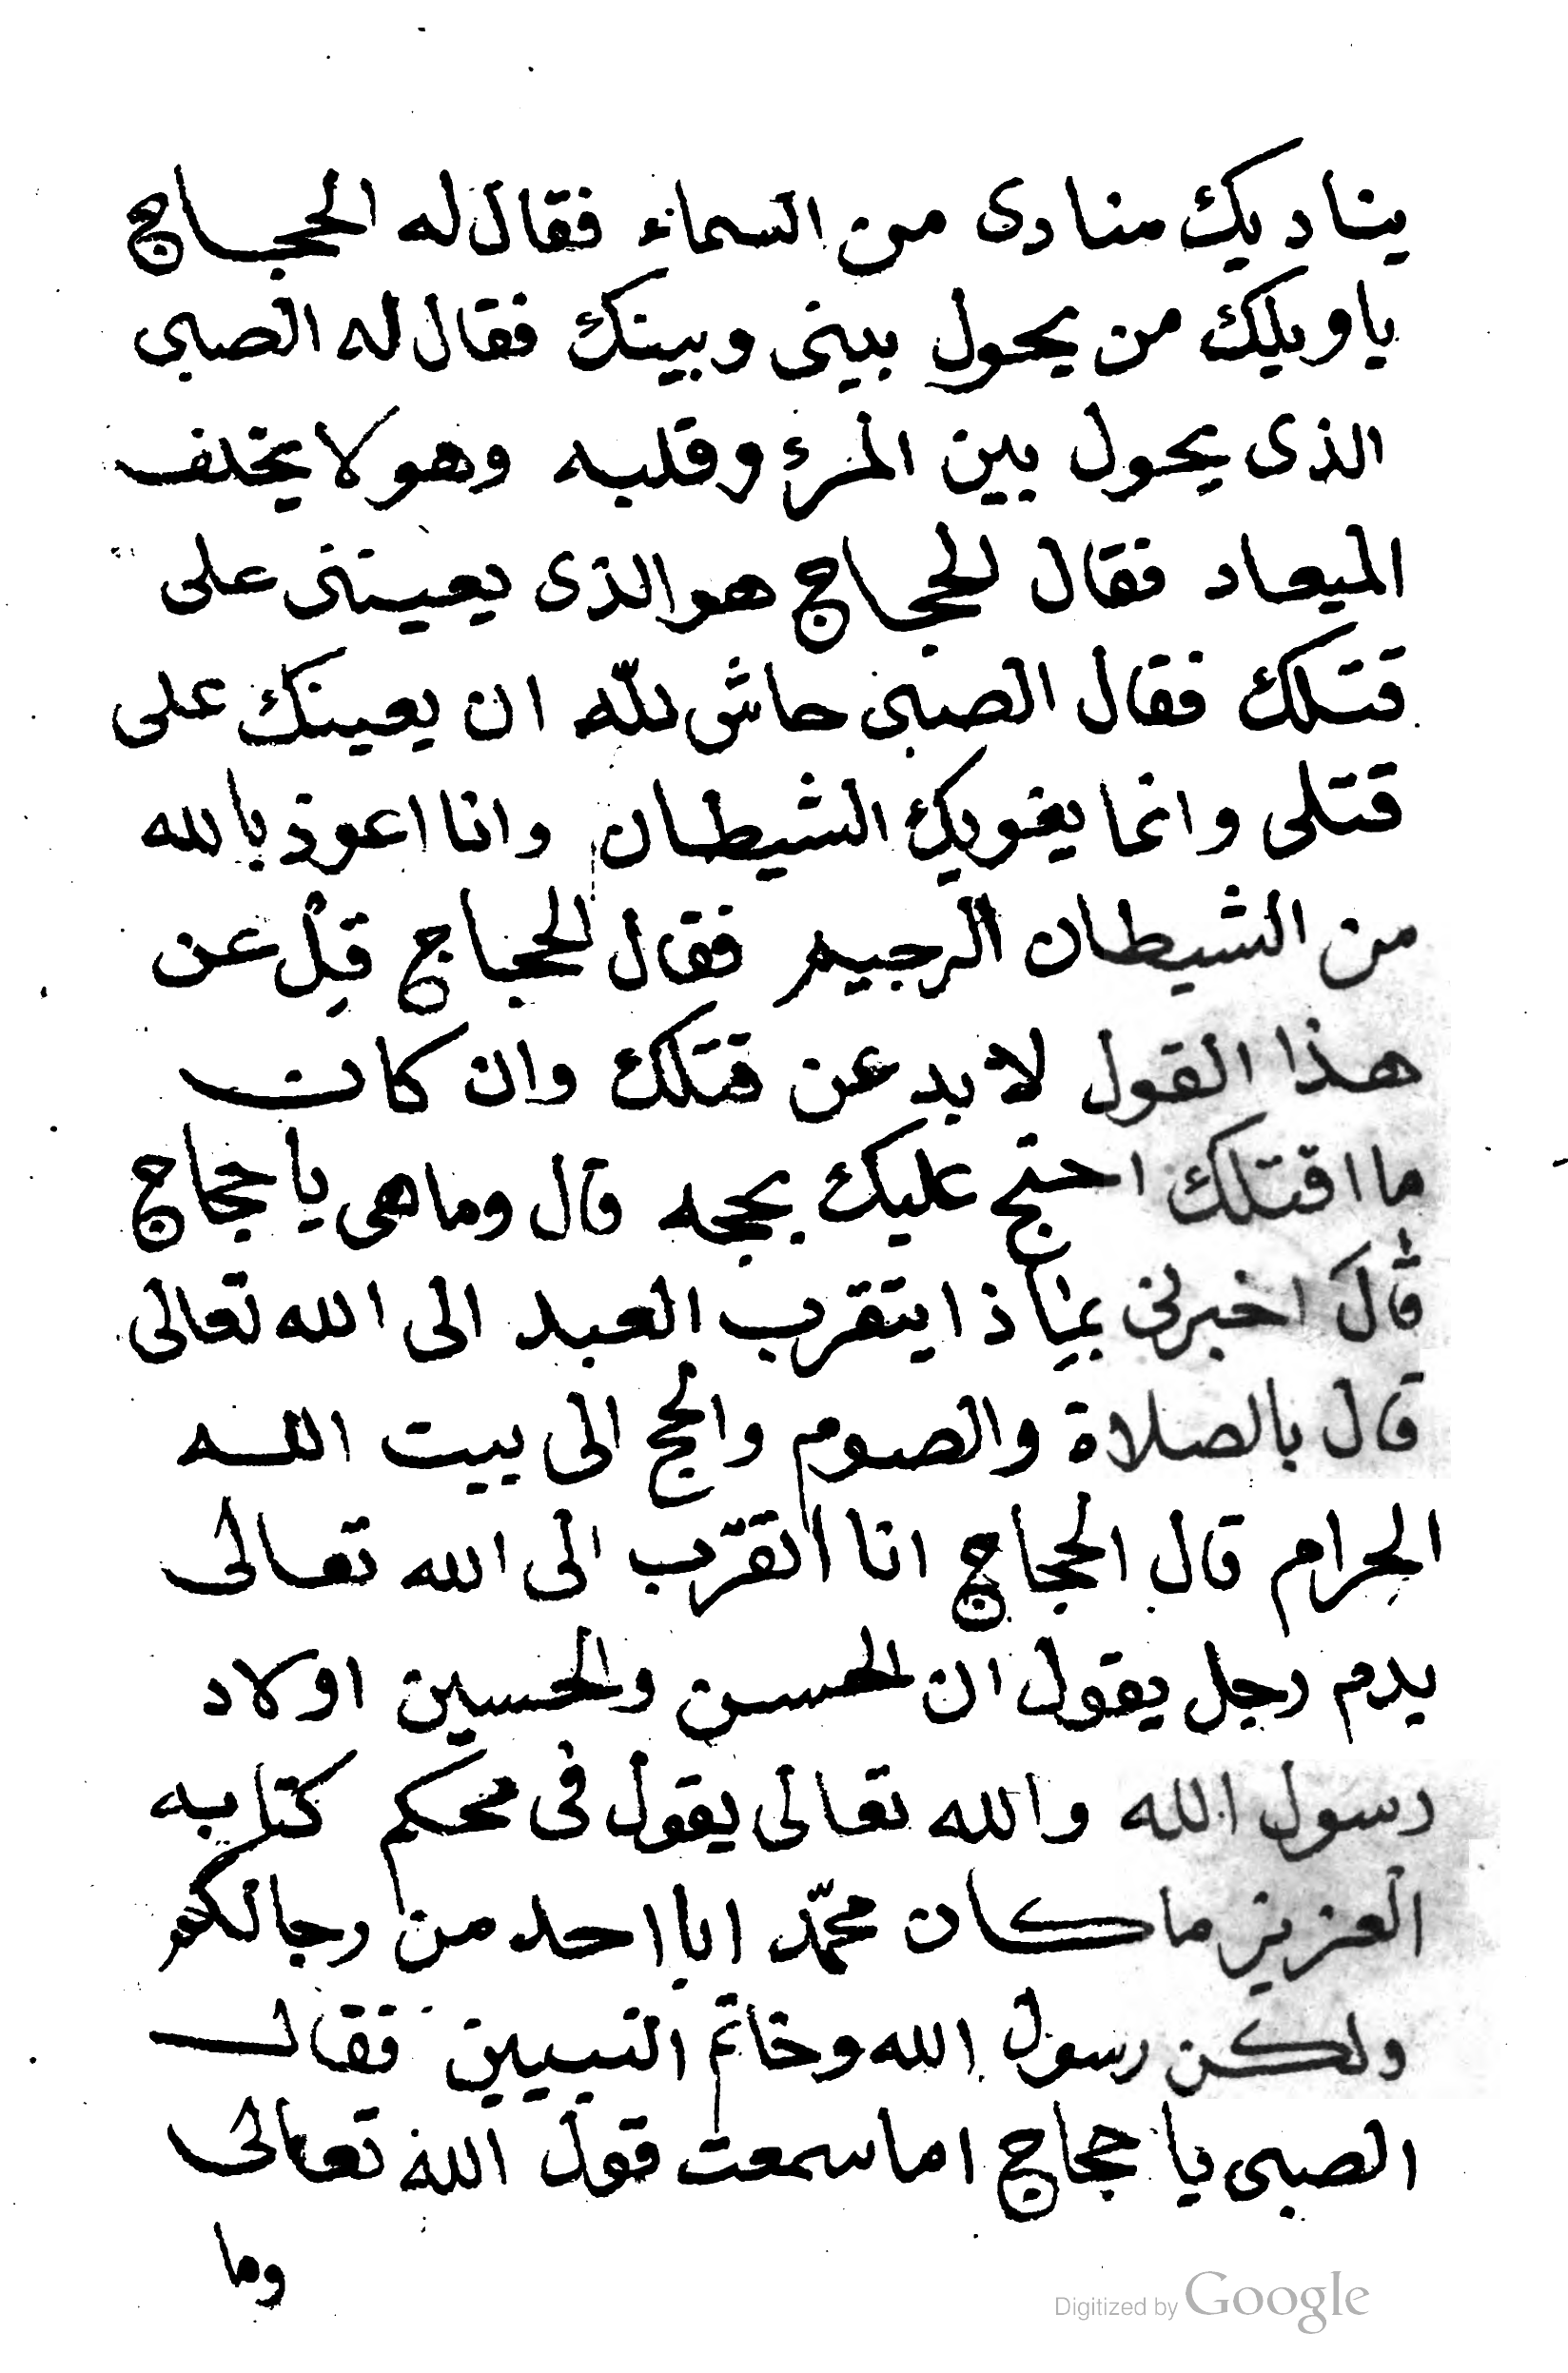 يناديك منادى من السماء فقال له الحجاج
ياويلك من يحول بينى وبينك فقال له الصبى
الذى يحول بين المرء وقلبه وهو لا يخلف
الميعاد فقال الحجاج هو الذى يعيننى على
قتلك فقال الصبى حاش لله ان يعينك على
قتلى وانما يغويك الشيطان وانا اعوذ بالله
من الشيطان الرجيم فقال الحجاج قِلْ عن
هذا القول لا بد عن قتلك وان كان
ما اقتلك احتج عليك بحجه قال وما هى يا حجاج
قال اخبرنى بماذا يتقرب العبد الى الله تعالى
قال بالصلاة والصوم والحج الى بيت الله
الحرام قال الحجاج انا اتقرّب الى الله تعالى
بدم رجل يقول ان الحسن والحسين اولاد
رسول الله والله تعالى يقول فى محكم كتابه
العزيز ما كان محمّد ابا احد من رجالكم
ولكن رسول الله وخاتم النبيين فقال
الصبى يا حجاج اما سمعت قول الله تعالى
وما
Digitized by Google